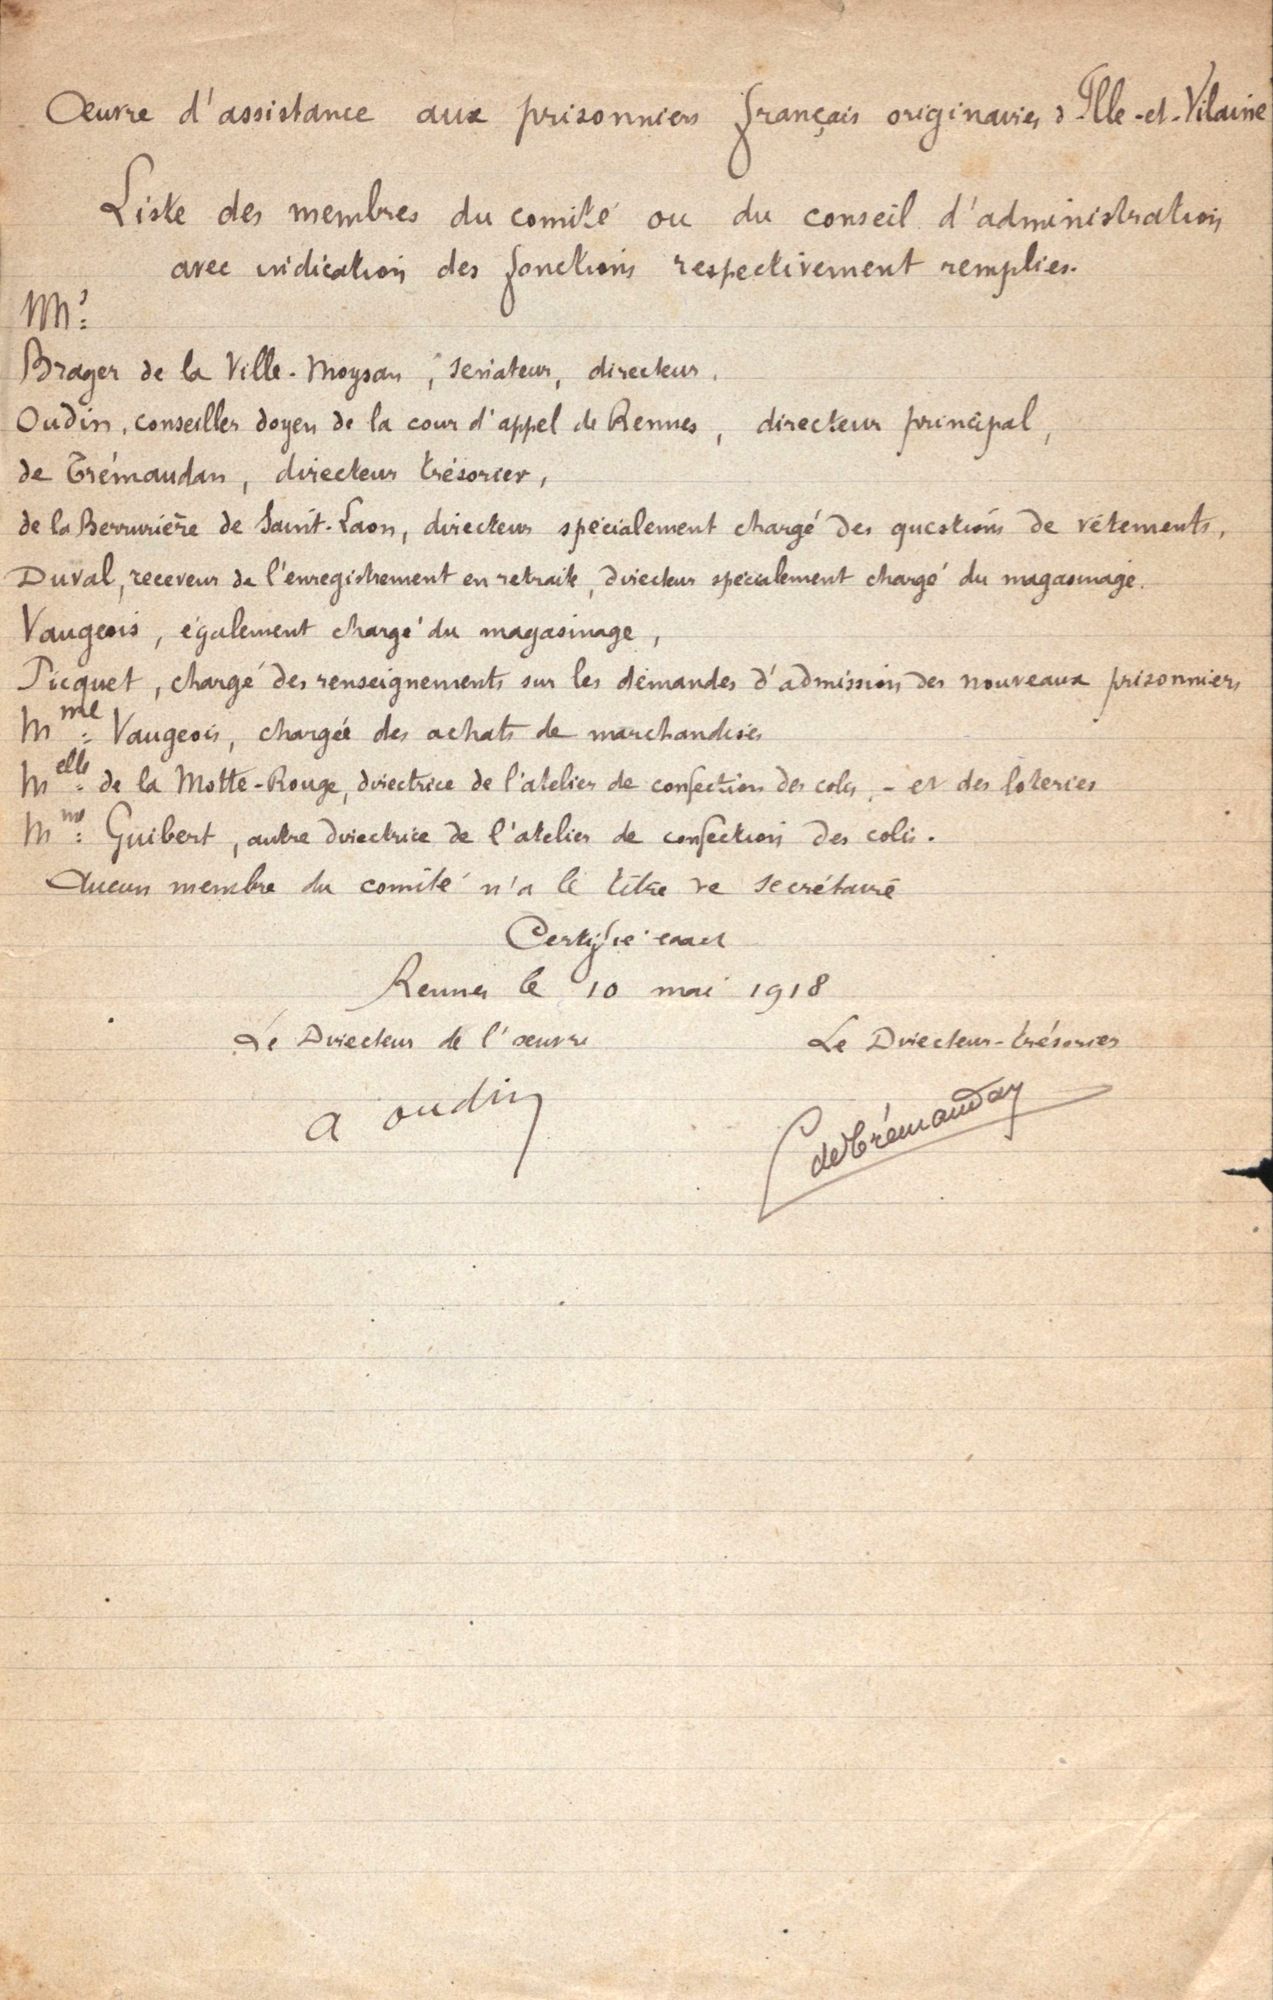 Œuvre d'assistance aux prisonniers français originaires d'Ille-et-Vilaine
Liste des membres du comité ou du conseil d'administration
avec indication des fonctions respectivement remplies.
MM.rs
Brager de la Ville-Moysan, sénateur, directeur.
Oudin, conseiller doyen de la cour d'appel de Rennes, directeur principal,
de Trémaudan, directeur trésorier,
de la Berrurière de Saint-Laon, directeur spécialement chargé des questions de vêtements.
Duval, receveur de l'enregistrement en retraite, directeur spécialement chargé du magasinage.
Vaugeois, également chargé du magasinage,
Picquet, chargé des renseignements sur les demandes d'admission des nouveaux prisonniers
Mme Vaugeois, chargée des achats de marchandises
Melle de la Motte-Rouge, directrice de l'atelier de confection des colis, - et des loteries
Mme Guibert, autre directrice de l'atelier de confection des colis.
Aucun membre du comité n'a le titre de secrétaire
Certifié exact
Rennes le 10 mai 1918
Le Directeur de l'œuvre Le Directeur-trésorier
A Oudin de Trémaudan